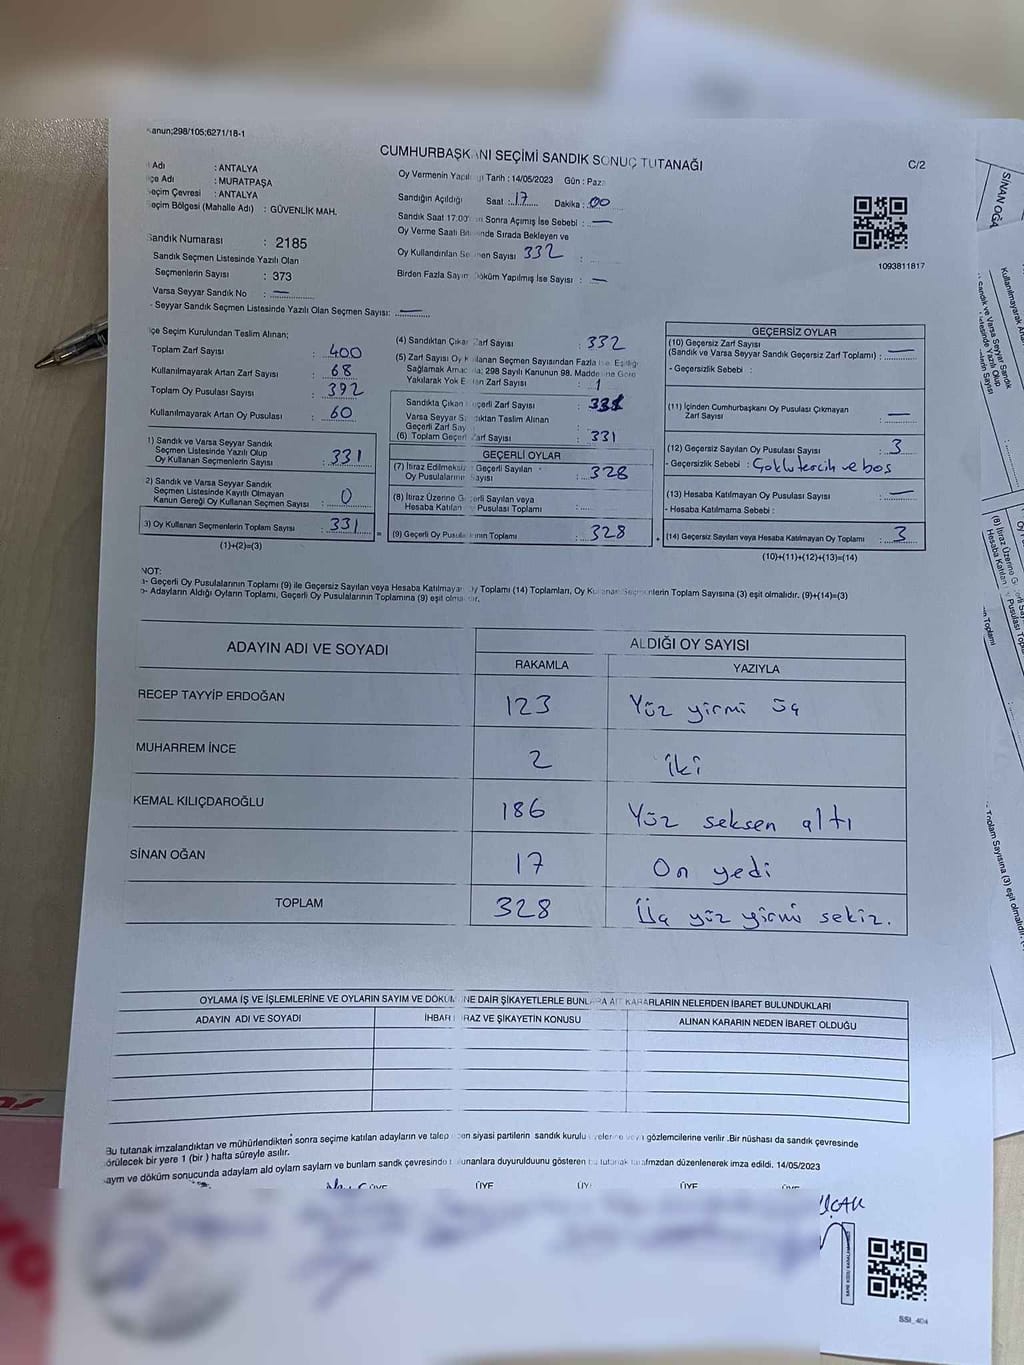 Kanun;298/105;6271/18-1
CUMHURBAŞKANI SEÇİMİ SANDIK SONUÇ TUTANAĞI
C/2
Adı : ANTALYA
Adı : MURATPAŞA
Seçim Çevresi : ANTALYA
Seçim Bölgesi (Mahalle Adı) : GÜVENLİK MAH.
Sandık Numarası : 2185
Sandık Seçmen Listesinde Yazılı Olan
Seçmenlerin Sayısı : 373
Varsa Seyyar Sandık No : —
- Seyyar Sandık Seçmen Listesinde Yazılı Olan Seçmen Sayısı: —
Oy Vermenin Yapıldığı Tarih : 14/05/2023 Gün : Pazar
Sandığın Açıldığı Saat : 17 Dakika : 00
Sandık Saat 17.00'den Sonra Açımış İse Sebebi : —
Oy Verme Saati Bitiminde Sırada Bekleyen ve
Oy Kullandırılan Seçmen Sayısı 332 :
Birden Fazla Sayım Döküm Yapılmış İse Sayısı : —
1093811817
İlçe Seçim Kurulundan Teslim Alınan;
Toplam Zarf Sayısı : 400
Kullanılmayarak Artan Zarf Sayısı : 68
Toplam Oy Pusulası Sayısı : 392
Kullanılmayarak Artan Oy Pusulası : 60
1) Sandık ve Varsa Seyyar Sandık
Seçmen Listesinde Yazılı Olup
Oy Kullanan Seçmenlerin Sayısı : 331
2) Sandık ve Varsa Seyyar Sandık
Seçmen Listesinde Kayıtlı Olmayan
Kanun Gereği Oy Kullanan Seçmen Sayısı : 0
3) Oy Kullanan Seçmenlerin Toplam Sayısı : 331
(1)+(2)=(3)
(4) Sandıktan Çıkan Zarf Sayısı : 332
(5) Zarf Sayısı Oy Kullanan Seçmen Sayısından Fazla İse, Eşitliği
Sağlamak Amacıyla; 298 Sayılı Kanunun 98. Maddesine Göre
Yakılarak Yok Edilen Zarf Sayısı : 1
Sandıkta Çıkan Geçerli Zarf Sayısı : 331
Varsa Seyyar Sandıktan Teslim Alınan
Geçerli Zarf Sayısı
(6) Toplam Geçerli Zarf Sayısı : 331
GEÇERLİ OYLAR
(7) İtiraz Edilmeksizin Geçerli Sayılan
Oy Pusulalarının Sayısı : 328
(8) İtiraz Üzerine Geçerli Sayılan veya
Hesaba Katılan Oy Pusulası Toplamı :
= (9) Geçerli Oy Pusulalarının Toplamı : 328
GEÇERSİZ OYLAR
(10) Geçersiz Zarf Sayısı
(Sandık ve Varsa Seyyar Sandık Geçersiz Zarf Toplamı) : —
- Geçersizlik Sebebi :
(11) İçinden Cumhurbaşkanı Oy Pusulası Çıkmayan
Zarf Sayısı : —
(12) Geçersiz Sayılan Oy Pusulası Sayısı : 3
- Geçersizlik Sebebi : Çoklu tercih ve boş
(13) Hesaba Katılmayan Oy Pusulası Sayısı : —
- Hesaba Katılmama Sebebi :
+ (14) Geçersiz Sayılan veya Hesaba Katılmayan Oy Toplamı : 3
(10)+(11)+(12)+(13)=(14)
NOT:
a- Geçerli Oy Pusulalarının Toplamı (9) ile Geçersiz Sayılan veya Hesaba Katılmayan Oy Toplamı (14) Toplamları, Oy Kullanan Seçmenlerin Toplam Sayısına (3) eşit olmalıdır. (9)+(14)=(3)
b- Adayların Aldığı Oyların Toplamı, Geçerli Oy Pusulalarının Toplamına (9) eşit olmalıdır.
ADAYIN ADI VE SOYADI
ALDIĞI OY SAYISI
RAKAMLA YAZIYLA
RECEP TAYYİP ERDOĞAN 123 Yüz yirmi üç
MUHARREM İNCE 2 iki
KEMAL KILIÇDAROĞLU 186 Yüz seksen altı
SİNAN OĞAN 17 On yedi
TOPLAM 328 Üç yüz yirmi sekiz.
OYLAMA İŞ VE İŞLEMLERİNE VE OYLARIN SAYIM VE DÖKÜMÜNE DAİR ŞİKAYETLERLE BUNLARA AİT KARARLARIN NELERDEN İBARET BULUNDUKLARI
ADAYIN ADI VE SOYADI İHBAR İTİRAZ VE ŞİKAYETİN KONUSU ALINAN KARARIN NEDEN İBARET OLDUĞU
Bu tutanak imzalandıktan ve mühürlendikten sonra seçime katılan adayların ve talep eden siyasi partilerin sandık kurulu üyelerine veya gözlemcilerine verilir .Bir nüshası da sandık çevresinde
görülecek bir yere 1 (bir ) hafta süreyle asılır.
Sayım ve döküm sonucunda adayların ald oyların sayılarını ve bunların sandk çevresinde bulunanlara duyurulduunu gösteren bu tutanak tarafmzdan düzenlenerek imza edildi. 14/05/2023
ÜYE ÜYE ÜYE ÜYE ÜYE
UÇAR
SSI_404
SİNAN OĞA
Kullanılmayarak
Sandık ve Varsa Seyyar Sandık
Listesinde Yazılı Olup
(8) İtiraz Üzerine G
Hesaba Katılan
Toplam Sayısına (3) eşit olmalıdır.